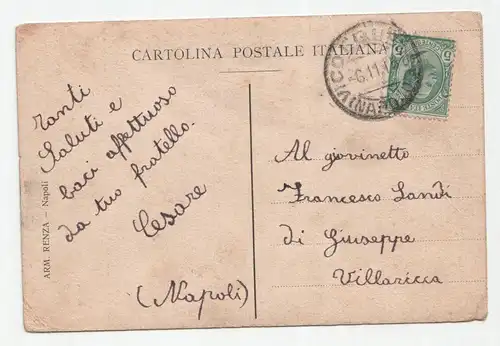 CARTOLINA POSTALE ITALIANA
Tanti
Saluti e
baci affettuoso
da tuo fratello
Cesare
(Napoli)
Al giovinetto
Francesco Landi
di Giuseppe
Villaricca
ARM. RENZA - Napoli